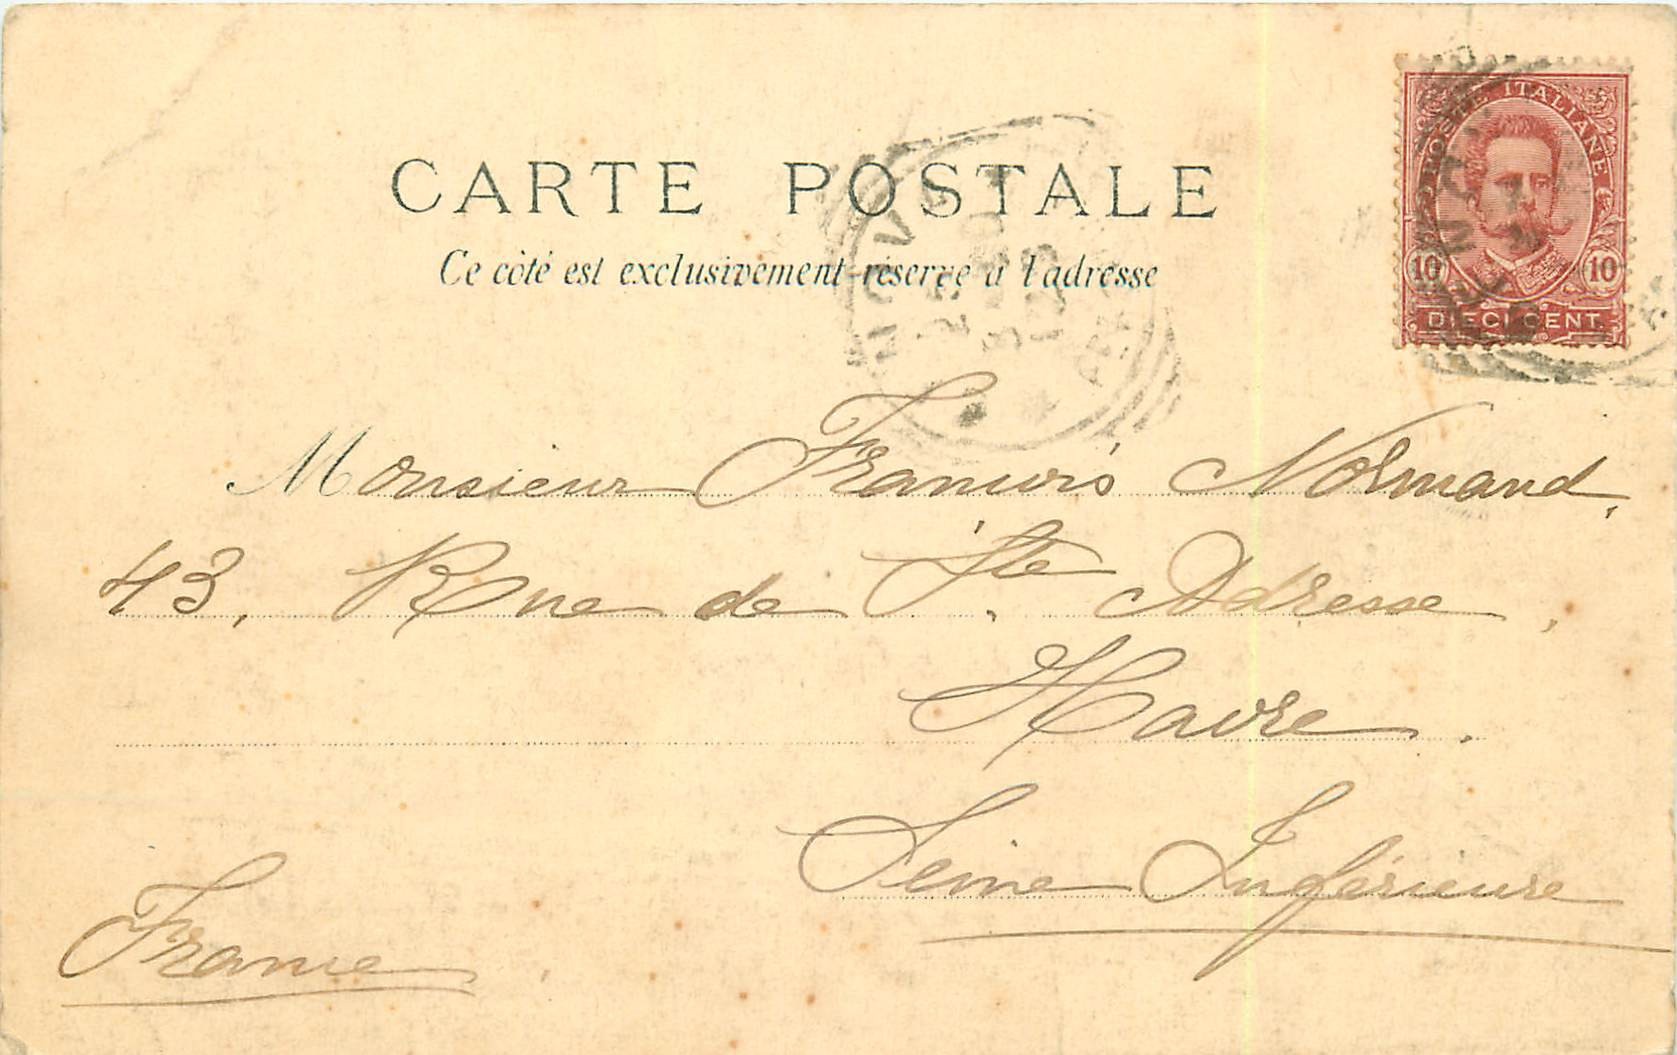 POSTE ITALIANE
CARTE POSTALE
Ce côté est exclusivement réservé à l'adresse
10 10
DIECI CENT.
Monsieur Francois Normand,
43, Rue de Ste Adresse,
Havre.
Seine Inférieure
France.